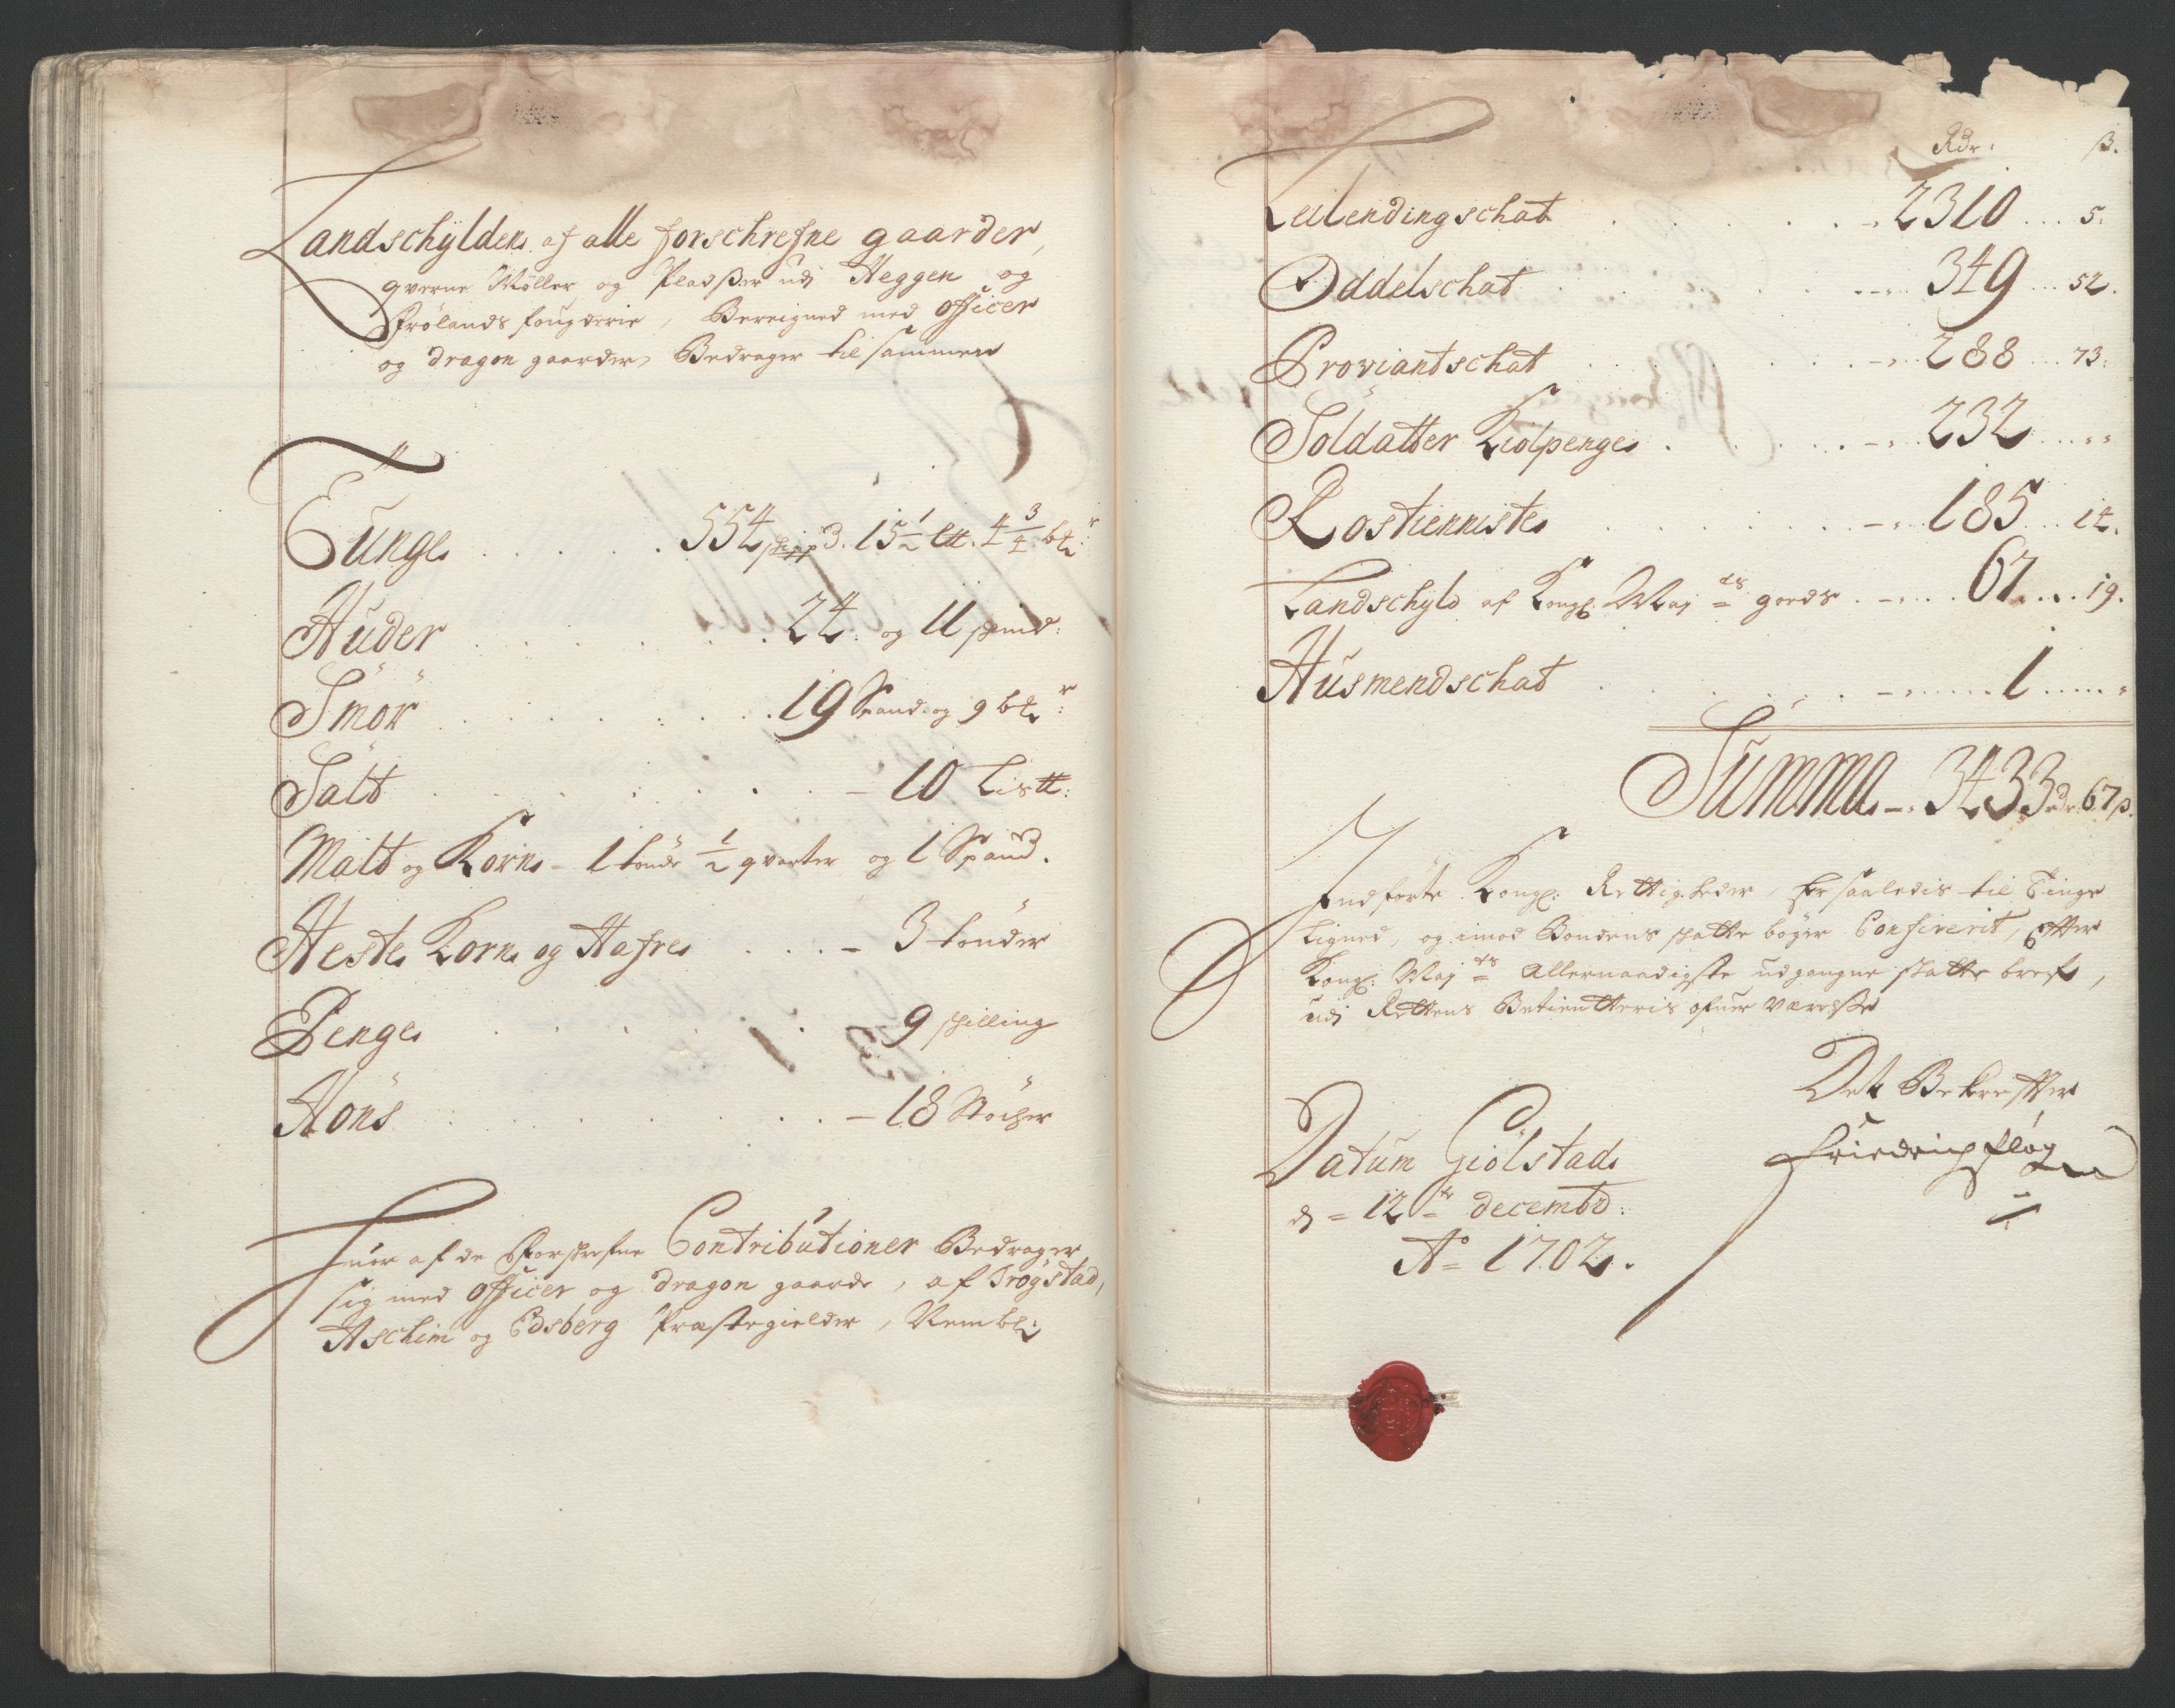 Landschÿlden af alle forschrefne gaarder,
qverne Møller og Pladßer udj Heggen og
Frølands fougderie, Bereigned med officer
og dragon gaarder, Bedrager til sammen
Tunge . . . . . 554 skpp3. 15 1/2 Ltt. 4 3/4 btr:
Huder . . . . . 24: og 11 skind:
Smör . . . . . 19 Spand og 9 btr:
Salt . . . . . 10 Listt:
Malt og Korn - 1 tønde 1/2 qvarter og 1 Spand.
Heste Korn og Hafre . . . . - 3 tönder
Penge . . . . . 9 skilling
Höns . . . . . - 18 Stöcher
Huor af de Forskrefne Contributioner Bedrager
sig med officer og dragon gaarde, af Trögstad,
Aschim og Edsberg Præstegielder, Nembl:
Rdr: ß.
Leilendingschat . . . . . 2310 . . . 5:
Oddelschat . . . . . 349 . . . 52.
Proviantschat . . . . . 288 . . . 73:
Soldatter Kiolpenge . . . . . 232 . . . "
Rostienniste . . . . . 185 . . . 14.
Landschÿld af Kongl: Majts goeds . - . . . 67 . . . 19.
Husmendschat . . . . . 1 . . . "
Summa - 3433 rdr: 67 ß.
Indførte Kongl: Rettigheder, Er saaledis til Tinge
Ligned, og imod Bondens skatte bøger Confirerit, Efter
Kongl: Majts Allernaadigste udgangne skatte bref,
udj Rettens Betientteris ofuer værelse
Det Bekreffter
Friedrich Flog
Datum Giölstad
d = 12 tr decembr:
Ao = 1702.